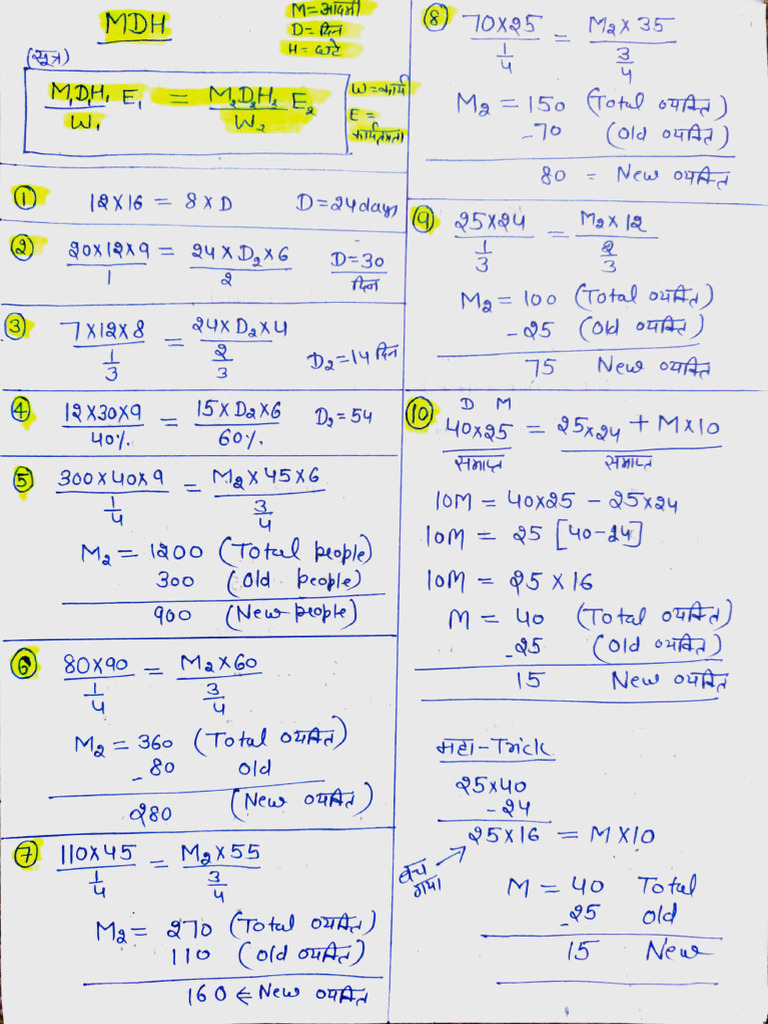 MDH
M = आदमी
D = दिन
H = घंटे
(सूत्र)
M₁D₁H₁ E₁ / W₁ = M₂D₂H₂ E₂ / W₂
W = कार्य
E =
कार्यक्षमता
① 12×16 = 8×D D = 24 days
② 20×12×9 / 1 = 24×D₂×6 / 2 D = 30 दिन
③ 7×12×8 / 1/3 = 24×D₂×4 / 2/3 D₂ = 14 दिन
④ 12×30×9 / 40% = 15×D₂×6 / 60% D₂ = 54
⑤ 300×40×9 / 1/4 = M₂×45×6 / 3/4
M₂ = 1200 (Total people)
300 (Old people)
900 (New people)
⑥ 80×90 / 1/4 = M₂×60 / 3/4
M₂ = 360 (Total व्यक्ति)
-80 old
280 (New व्यक्ति)
⑦ 110×45 / 1/4 = M₂×55 / 3/4
M₂ = 270 (Total व्यक्ति)
110 (old व्यक्ति)
160 ← New व्यक्ति
⑧ 70×25 / 1/4 = M₂×35 / 3/4
M₂ = 150 (Total व्यक्ति)
-70 (Old व्यक्ति)
80 = New व्यक्ति
⑨ 25×24 / 1/3 = M₂×12 / 2/3
M₂ = 100 (Total व्यक्ति)
-25 (Old व्यक्ति)
75 New व्यक्ति
D M
⑩ 40×25 / समाप्त = 25×24 + M×10 / समाप्त
10M = 40×25 - 25×24
10M = 25 [40-24]
10M = 25×16
M = 40 (Total व्यक्ति)
-25 (Old व्यक्ति)
15 New व्यक्ति
महा-Trick
25×40
-24
25×16 = M×10
बच गया
M = 40 Total
-25 old
15 New